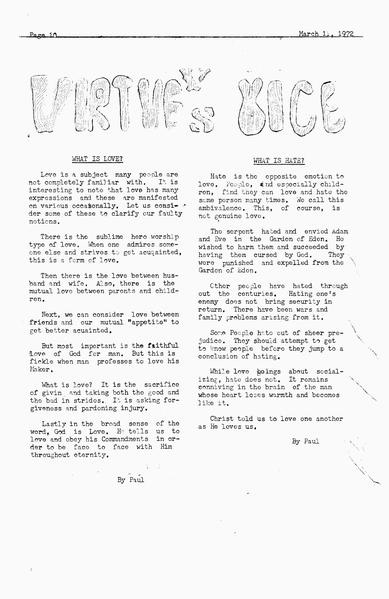 Page 10
March 11, 1972
VIRTUE vs VICE
WHAT IS LOVE?
Love is a subject many people are
not completely familiar with. It is
interesting to note that love has many
expressions and these are manifested
on various occasionally. Let us consi-
der some of these to clarify our faulty
notions.
There is the sublime hero worship
type of love. When one admires some-
one else and strives to get acquainted,
this is a form of love.
Then there is the love between hus-
band and wife. Also, there is the
mutual love between parents and child-
ren.
Next, we can consider love between
friends and our mutual "appetite" to
get better acquainted.
But most important is the faithful
Love of God for man. But this is
fickle when man professes to love his
Maker.
What is love? It is the sacrifice
of givin and taking both the good and
the bad in strides. It is asking for-
giveness and pardoning injury.
Lastly in the broad sense of the
word, God is Love. He tells us to
love and obey his Commandments in or-
der to be face to face with Him
throughout eternity.
By Paul
WHAT IS HATE?
Hate is the opposite emotion to
love. People, and especially child-
ren, find they can love and hate the
same person many times. We call this
ambivalence. This, of course, is
not genuine love.
The serpent hated and envied Adam
and Eve in the Garden of Eden. He
wished to harm them and succeeded by
having them cursed by God. They
were punished and expelled from the
Garden of Eden.
Other people have hated through
out the centuries. Hating one's
enemy does not bring security in
return. There have been wars and
family problems arising from it.
Some People hate out of sheer pre-
judice. They should attempt to get
to know people before they jump to a
conclusion of hating.
While love brings about social-
izing, hate does not. It remains
conniving in the brain of the man
whose heart loses warmth and becomes
like it.
Christ told us to love one another
as He loves us.
By Paul